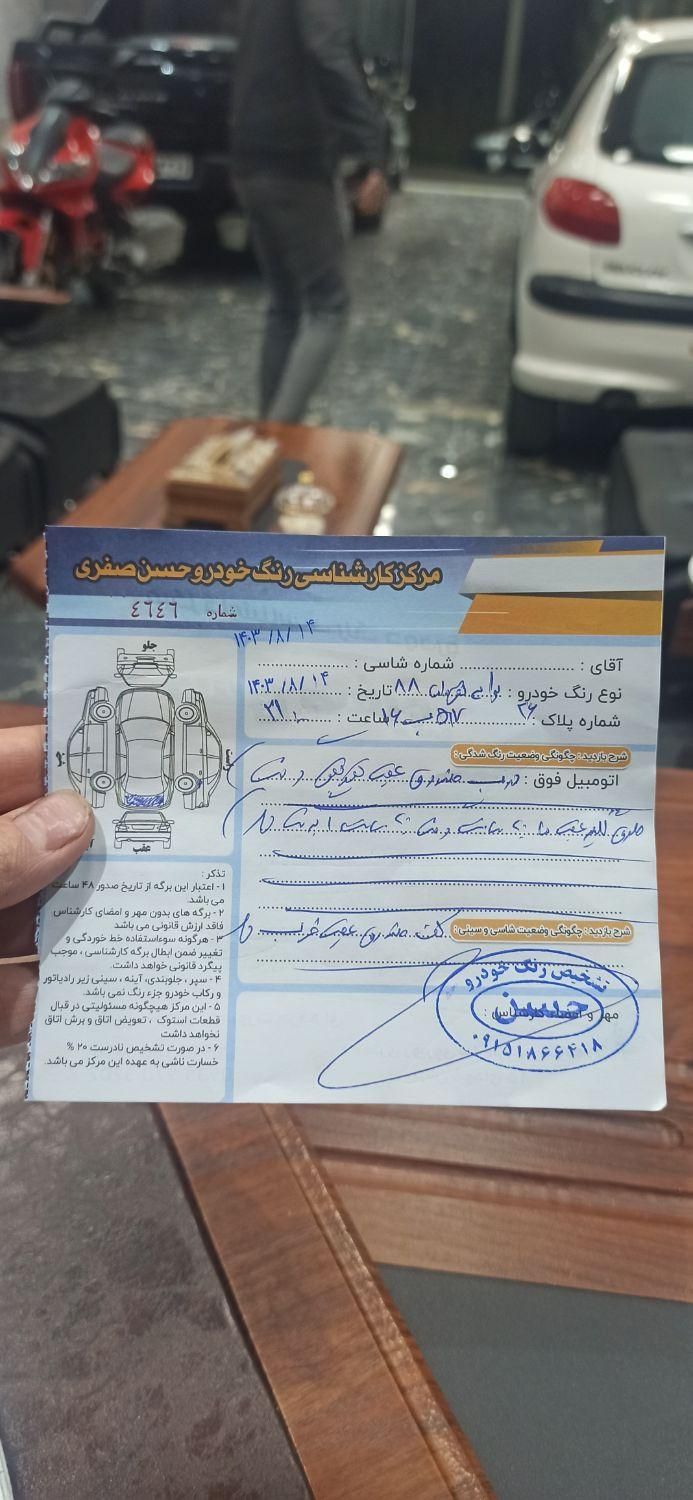 مرکز کارشناسی رنگ خودرو حسن صفری
شماره ٤٦٤٦
۱۴۰۳/۸/۱۴
جلو
عقب
آقای : شماره شاسی :
نوع رنگ خودرو : ۸۸ تاریخ : ۱۴۰۳/۸/۱۴
شماره پلاک : ۳۶ ۵۱۷ ب ۱۶ ساعت : ۲۱
شرح بازدید : چگونگی وضعیت رنگ شدگی :
اتومبیل فوق : درب صندوق عقب
گلگیر عقب
شرح بازدید : چگونگی وضعیت شاسی و سینی : کف صندوق عقب
مهر و امضاء کارشناس :
تشخیص رنگ خودرو
حسن
۰۹۱۵۱۸۶۶۴۱۸
تذکر :
۱ - اعتبار این برگه از تاریخ صدور ۴۸ ساعت
می باشد.
۲ - برگه های بدون مهر و امضای کارشناس
فاقد ارزش قانونی می باشد
۳ - هرگونه سوءاستفاده خط خوردگی و
تغییر ضمن ابطال برگه کارشناسی ، موجب
پیگرد قانونی خواهد داشت.
۴ - سپر ، جلوبندی، آینه ، سینی زیر رادیاتور
و رکاب خودرو جزء رنگ نمی باشد.
۵ - این مرکز هیچگونه مسئولیتی در قبال
قطعات استوک ، تعویض اتاق و برش اتاق
نخواهد داشت
۶ - در صورت تشخیص نادرست ۲۰ %
خسارت ناشی به عهده این مرکز می باشد.